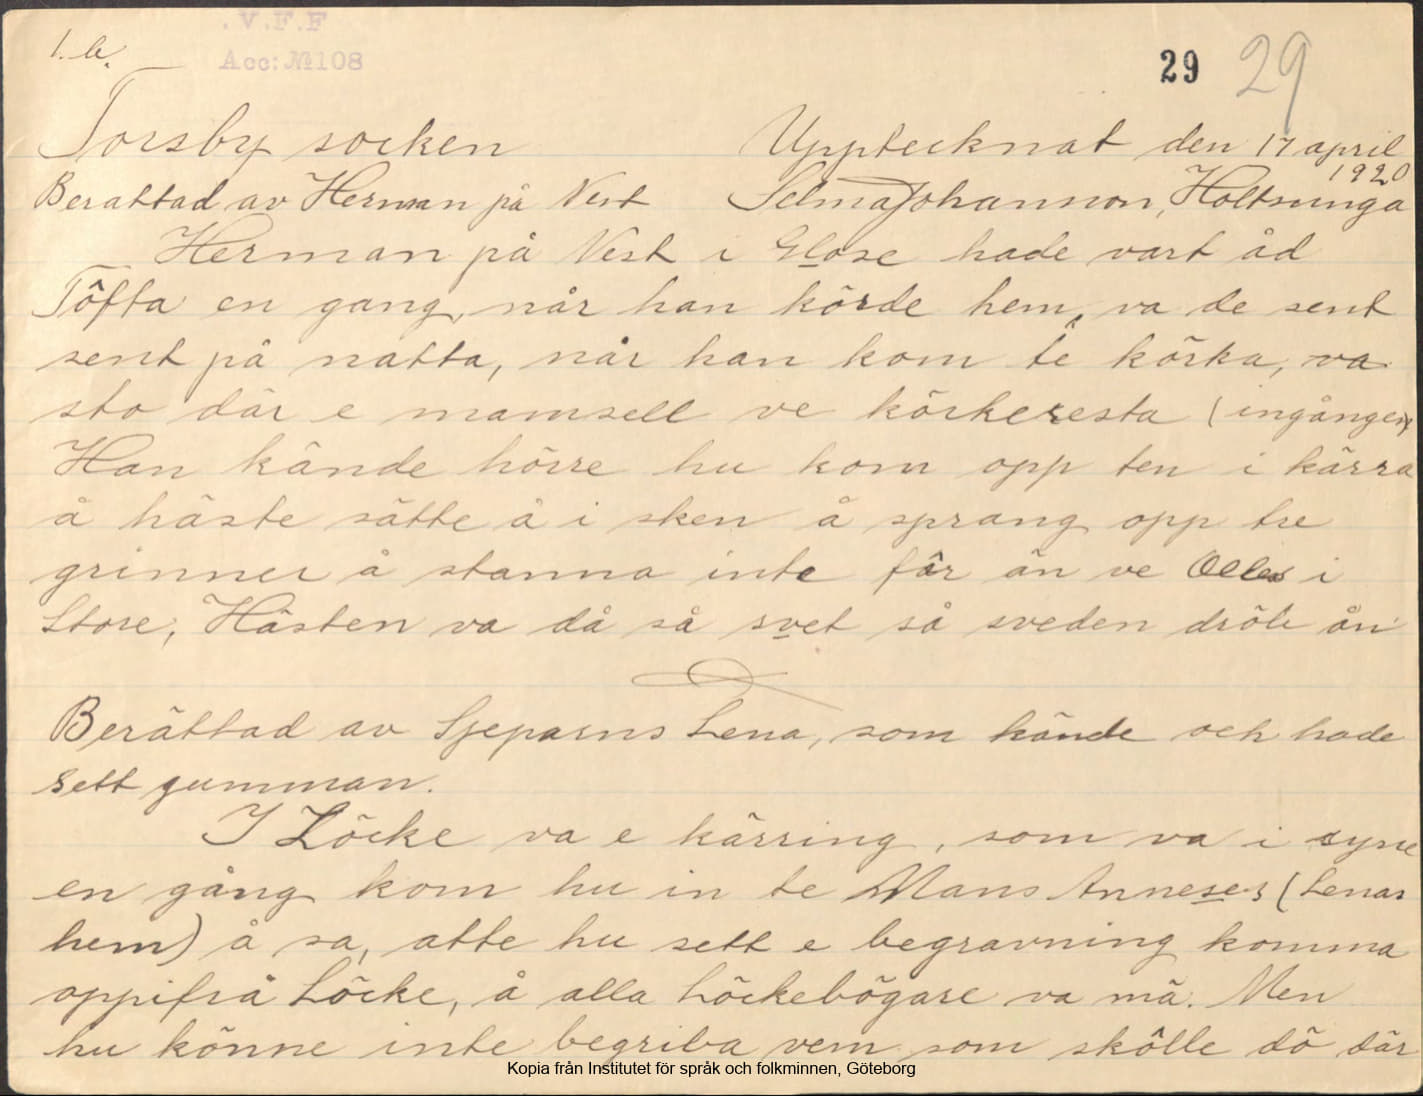 1. b.
. V.F.F
Acc: № 108
29 29
Torsby socken Upptecknat den 17 april
1920
Berättad av Herman på Vest Selma Johansson, Holtsunga
Herman på Vest i Glose hade vart åd
Tôfta en gang, når han körde hem, va de sent
sent på natta, når han kom te körka, va
sto där e mamsell ve körkeresta (ingången)
Han kände hörre hu kom opp ten i kärra
å häste sätte å i sken å sprang opp tre
grinner å stanna inte fôr än ve Olles i
Store, Hästen va då så svet så sveden dröb ån
Berättad av Sjeparns Lena, som kände och hade
sett gumman.
I Löcke va e kärring, som va i syne
en gång kom hu in te Mans Anneses (Lenas
hem) å sa, atte hu sett e begravning komma
oppifrå Löcke, å alla Löckebögare va mä. Men
hu könne inte begriba vem som skôlle dö där
Kopia från Institutet för språk och folkminnen, Göteborg